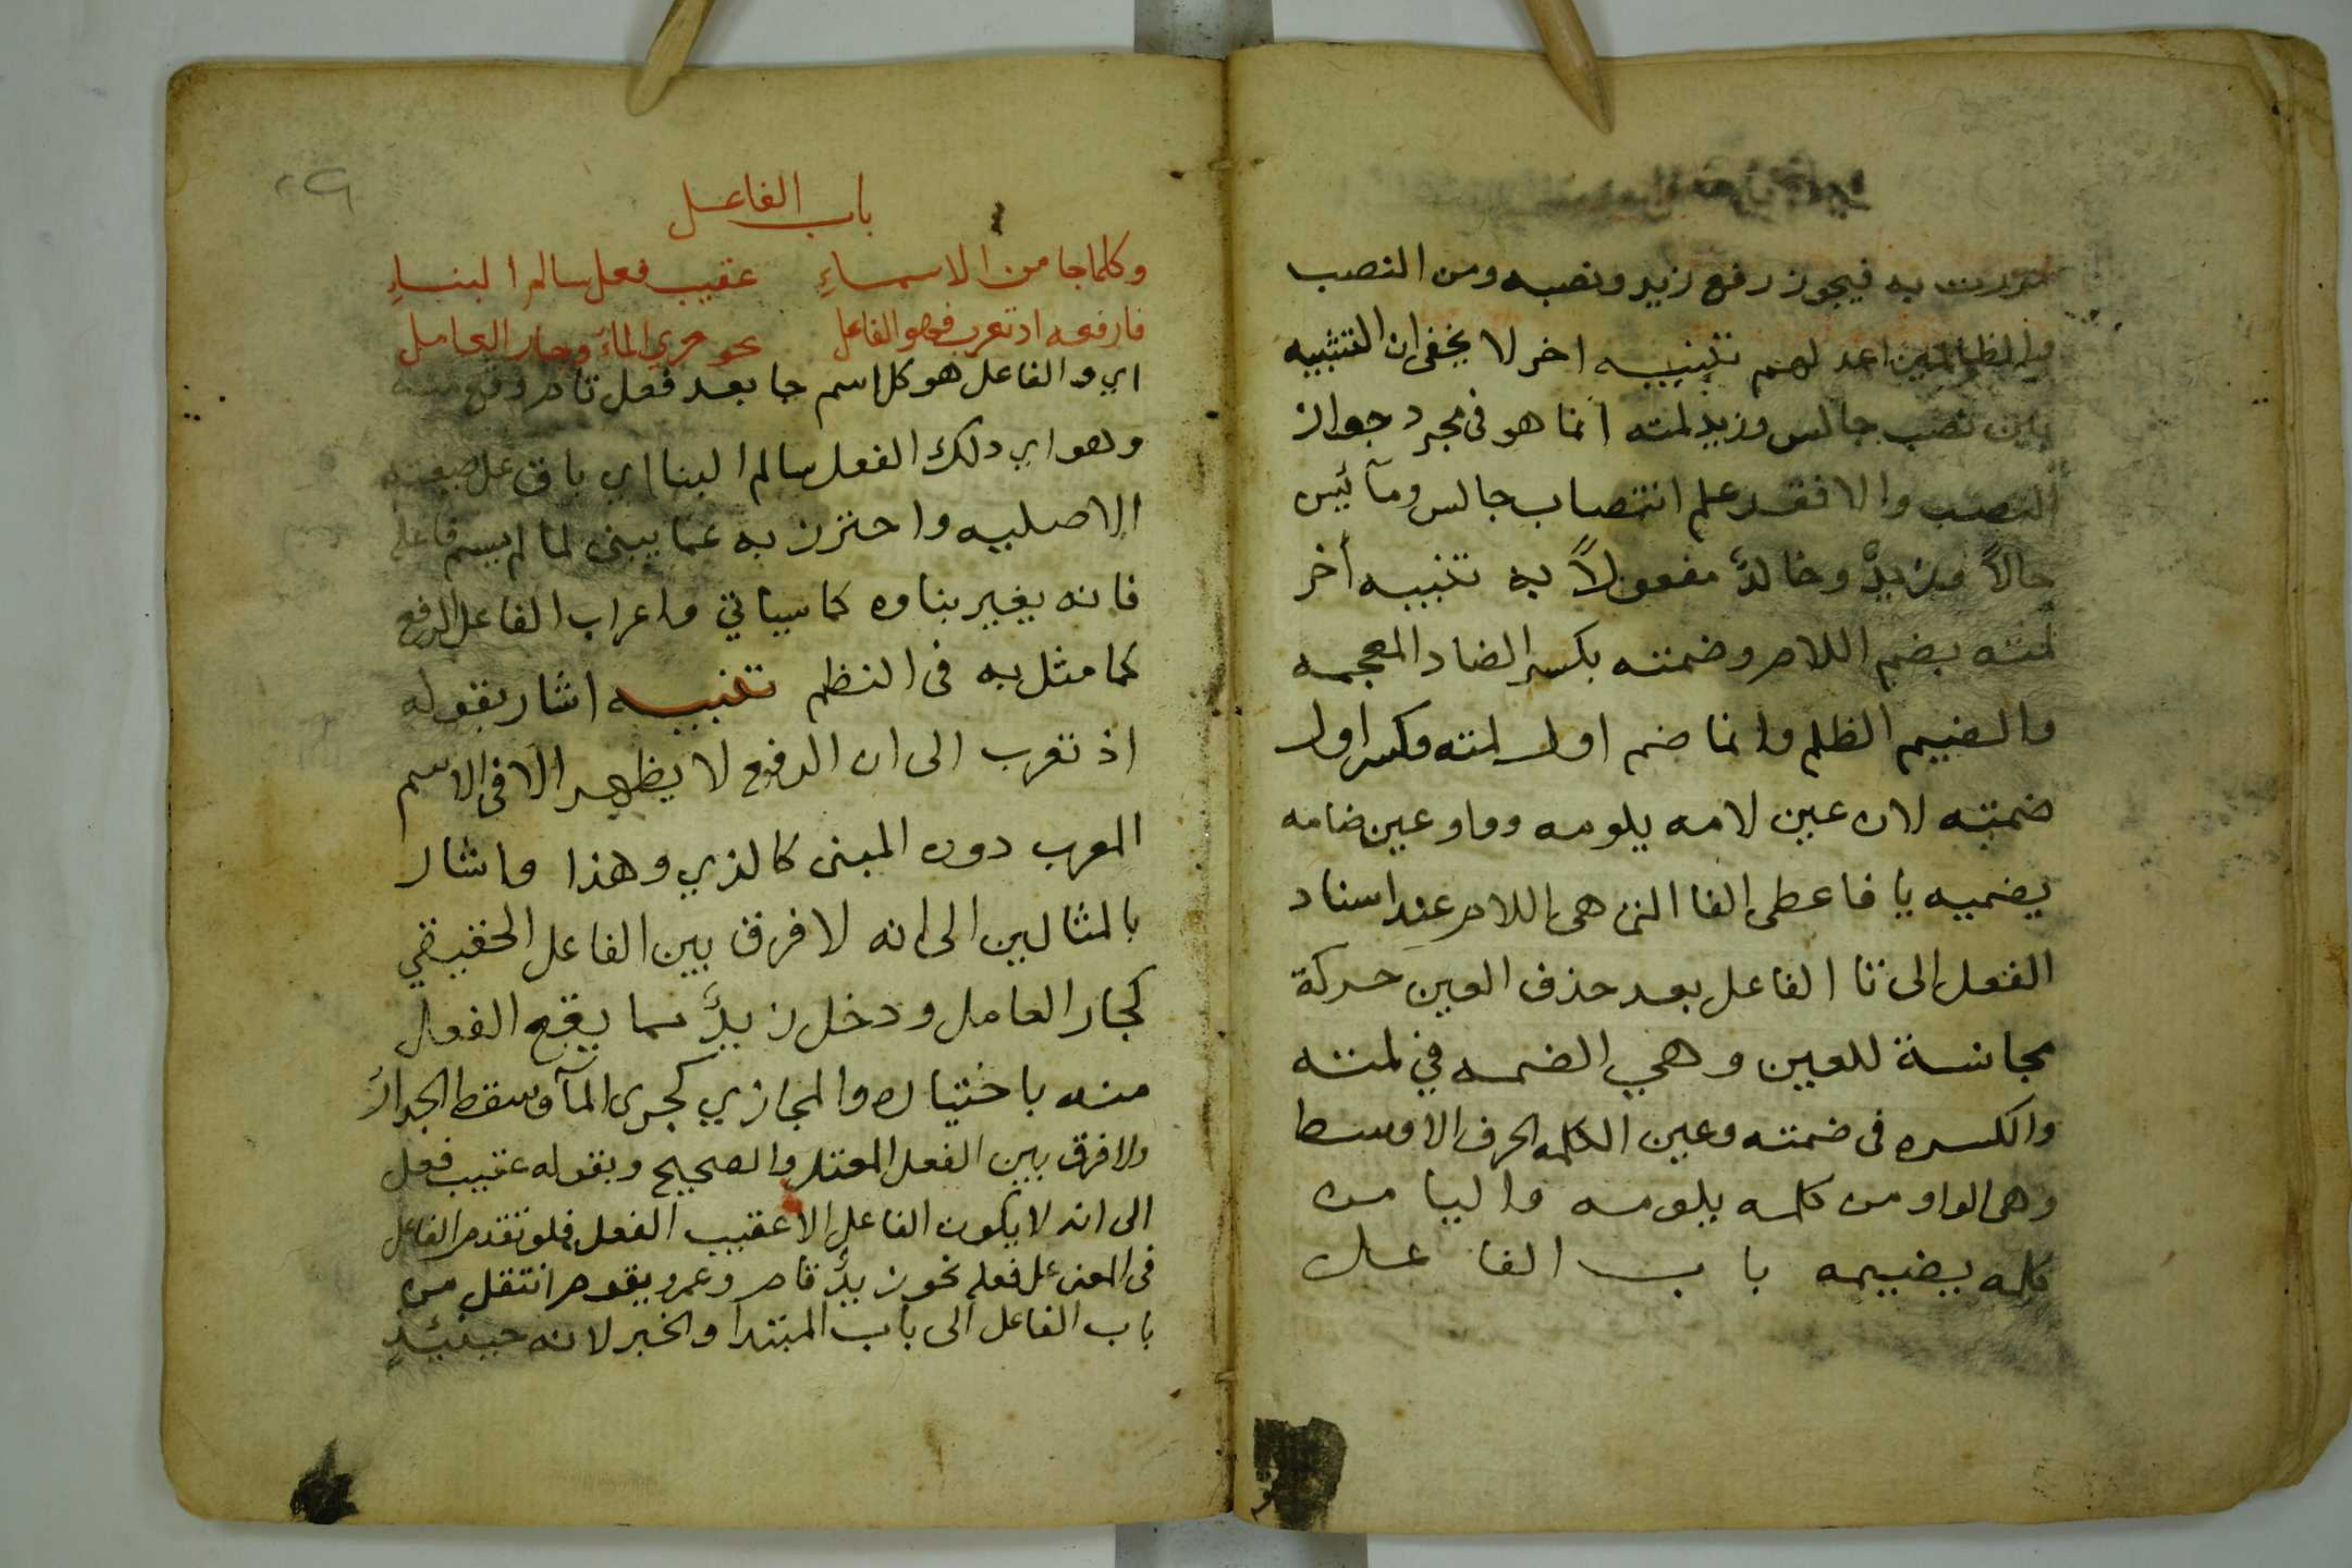 مررت به فيجوز رفع زيد ونصبه ومن النصب
والظالمين اعد لهم تنبيه اخر لا يخفى ان التشبيه
بين نصب جالس وزيد لمته انما هو فى مجرد جواز
النصب والا فقد علم انتصاب جالس ومآئيس
حالاً وزيدٌ وخالدٌ مفعولاً به تنبيه أخر
لمته بضم اللام وضمته بكسر الضاد المعجمه
والضيم الظلم وانما ضم اول لمته وكسر اول
ضمته لان عين لامه يلومه وواو عين ضامه
يضميه يا فاعطى الفا التى هى اللام عند اسناد
الفعل الى تا الفاعل بعد حذف العين حركة
مجانسة للعين وهي الضمه في لمته
والكسره فى ضمته وعين الكلمه الحرف الاوسط
وهى الواو من كلمه يلومه واليا من
كلمه يضيمه باب الفاعل
باب الفاعل
وكلما جا من الاسماءِ عقيب فعل سالم البناءِ
فارفعه اذ تعرب فهو الفاعل نحو جرى الماءُ وجار العامل
اي والفاعل هو كل اسم جا بعد فعل تام وقع منه
وهو اي ذلك الفعل سالم البنا اي باق على صيغته
الاصليه واحترز به عما يبنى لما لم يسم فاعله
فانه يغير بناوه كما سياتي واعراب الفاعل الرفع
كما مثل به فى النظم تنبيه اشار بقوله
اذ تعرب الى ان الرفع لا يظهر الا فى الاسم
المعرب دون المبنى كالذي وهذا واشار
بالمثالين الى انه لا فرق بين الفاعل الحقيقي
كجار العامل ودخل زيدٌ مما يقع الفعل
منه باختياره والمجازي كجرى المآ وسقط الجدارُ
ولا فرق بين الفعل المعتل والصحيح وبقوله عقيب فعل
الى انه لا يكون الفاعل الا عقيب الفعل فلو تقدم الفاعل
فى المعنى على فعله نحو زيدٌ قام وعمرو يقوم انتقل من
باب الفاعل الى باب المبتدا والخبر لانه حينئيذٍ